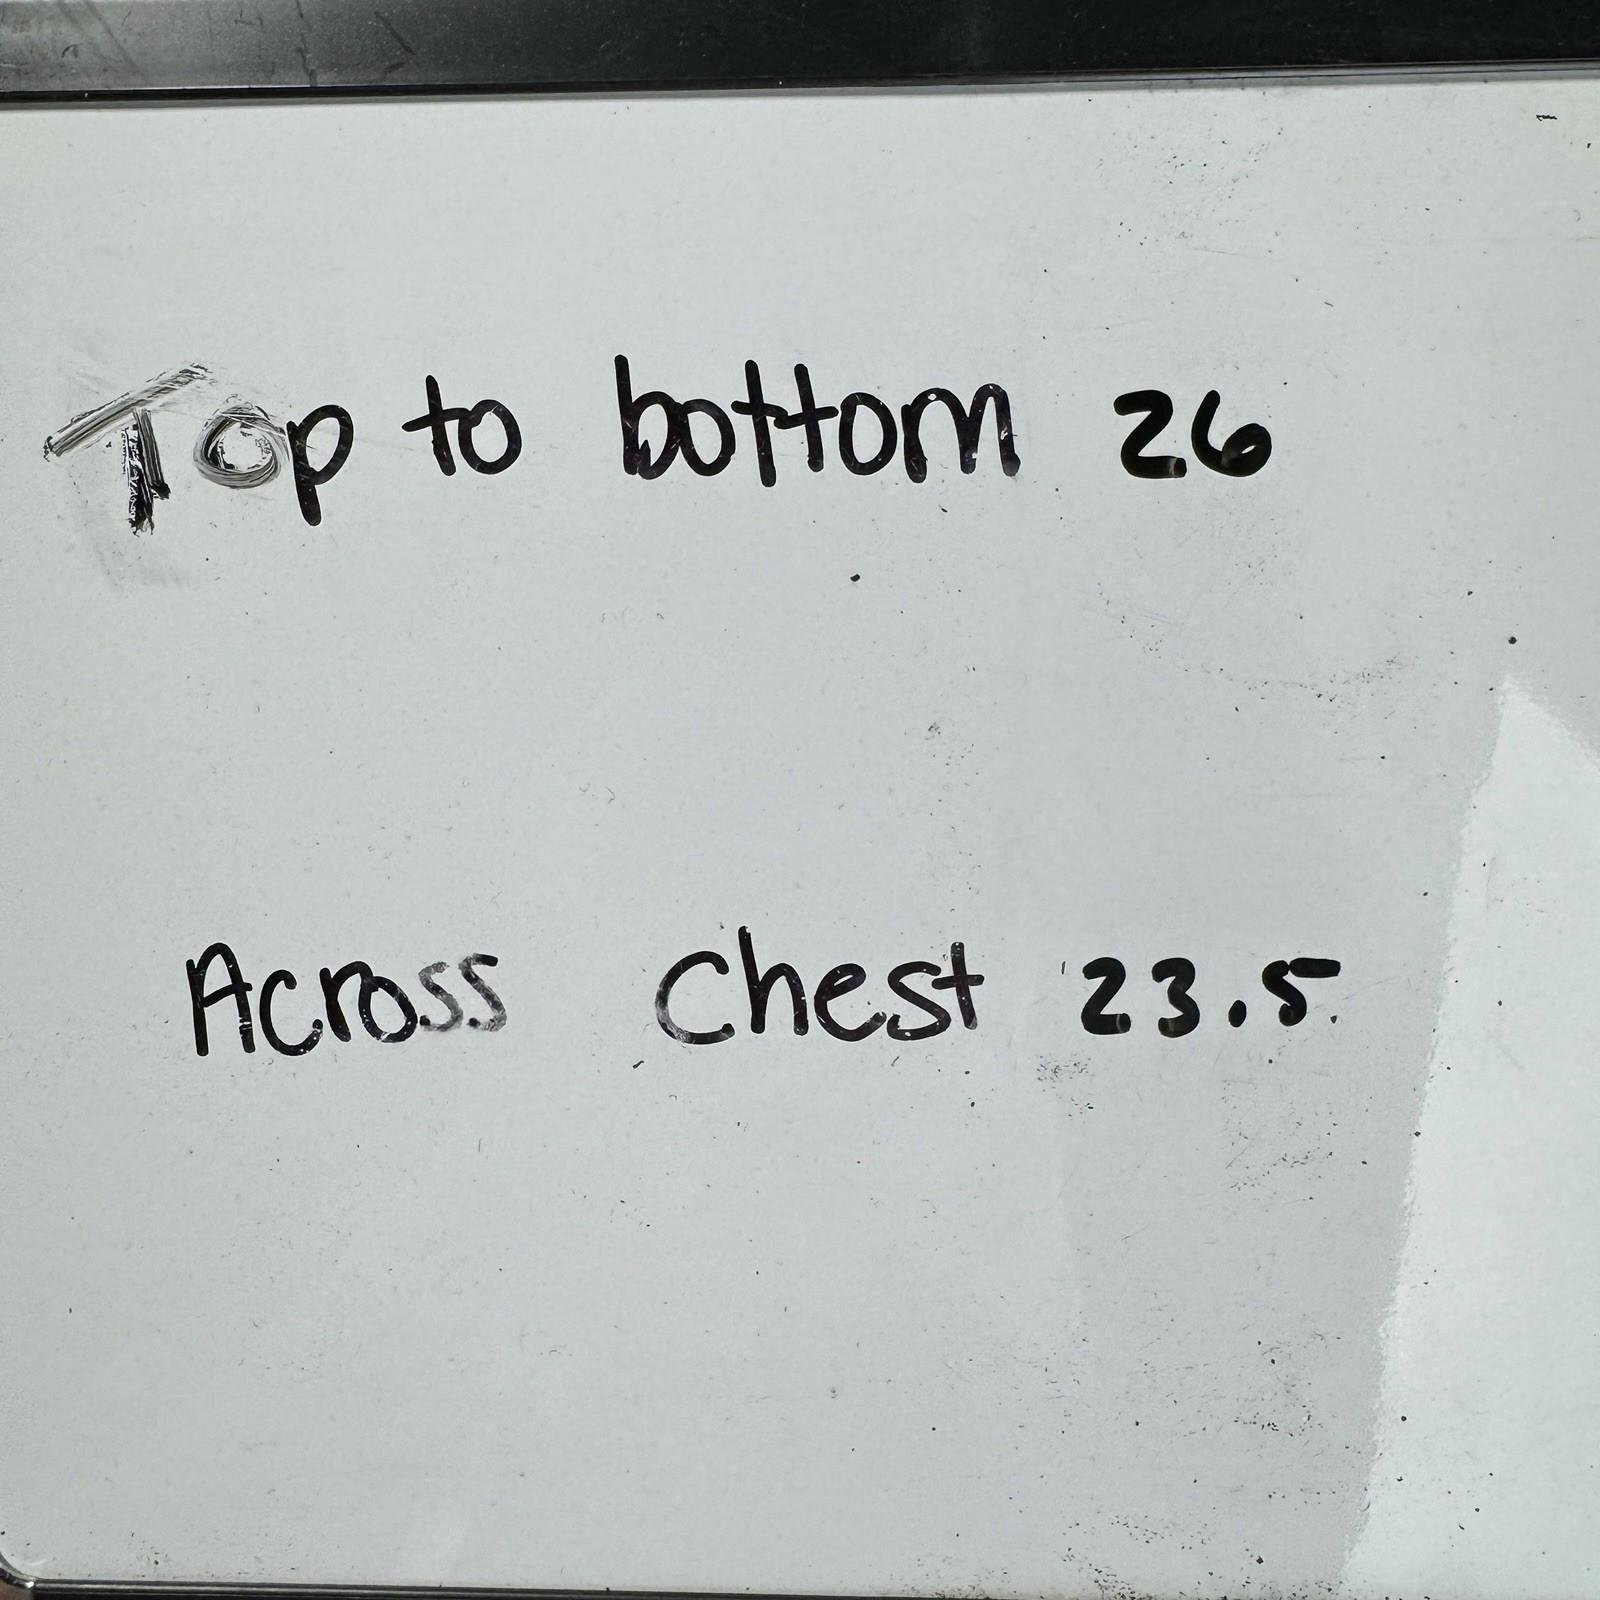 Top to bottom 26
Across Chest 23.5